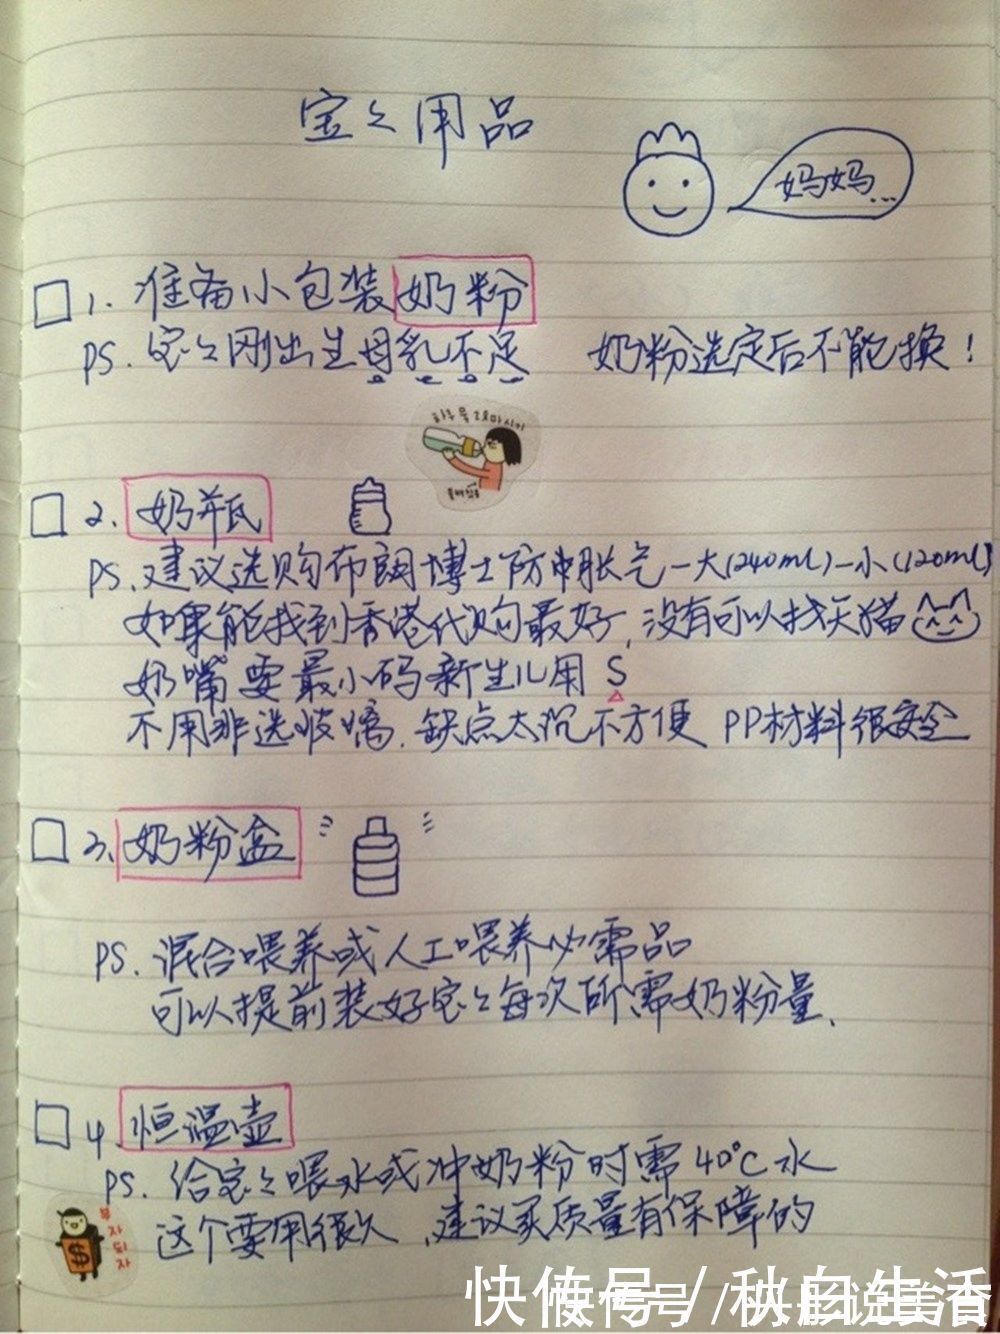 宝々用品
妈妈...
□ 1. 准备小包装奶粉
PS. 宝々刚出生母乳不足 奶粉选定后不能换！
하루 물 2ℓ 마시기
□ 2. 奶瓶
PS. 建议选购布朗博士防胀气一大(240ml)一小(120ml)
如果能找到香港代购最好, 没有可以找天猫
奶嘴要最小码新生儿用 S
不用非选玻璃. 缺点太沉不方便 PP材料很安全
□ 3. 奶粉盒
PS. 混合喂养或人工喂养必需品
可以提前装好宝々每次所需奶粉量.
□ 4. 恒温壶
PS. 给宝々喂水或冲奶粉时需40℃水
这个要用很久, 建议买质量有保障的
$
快传号/秋白生活